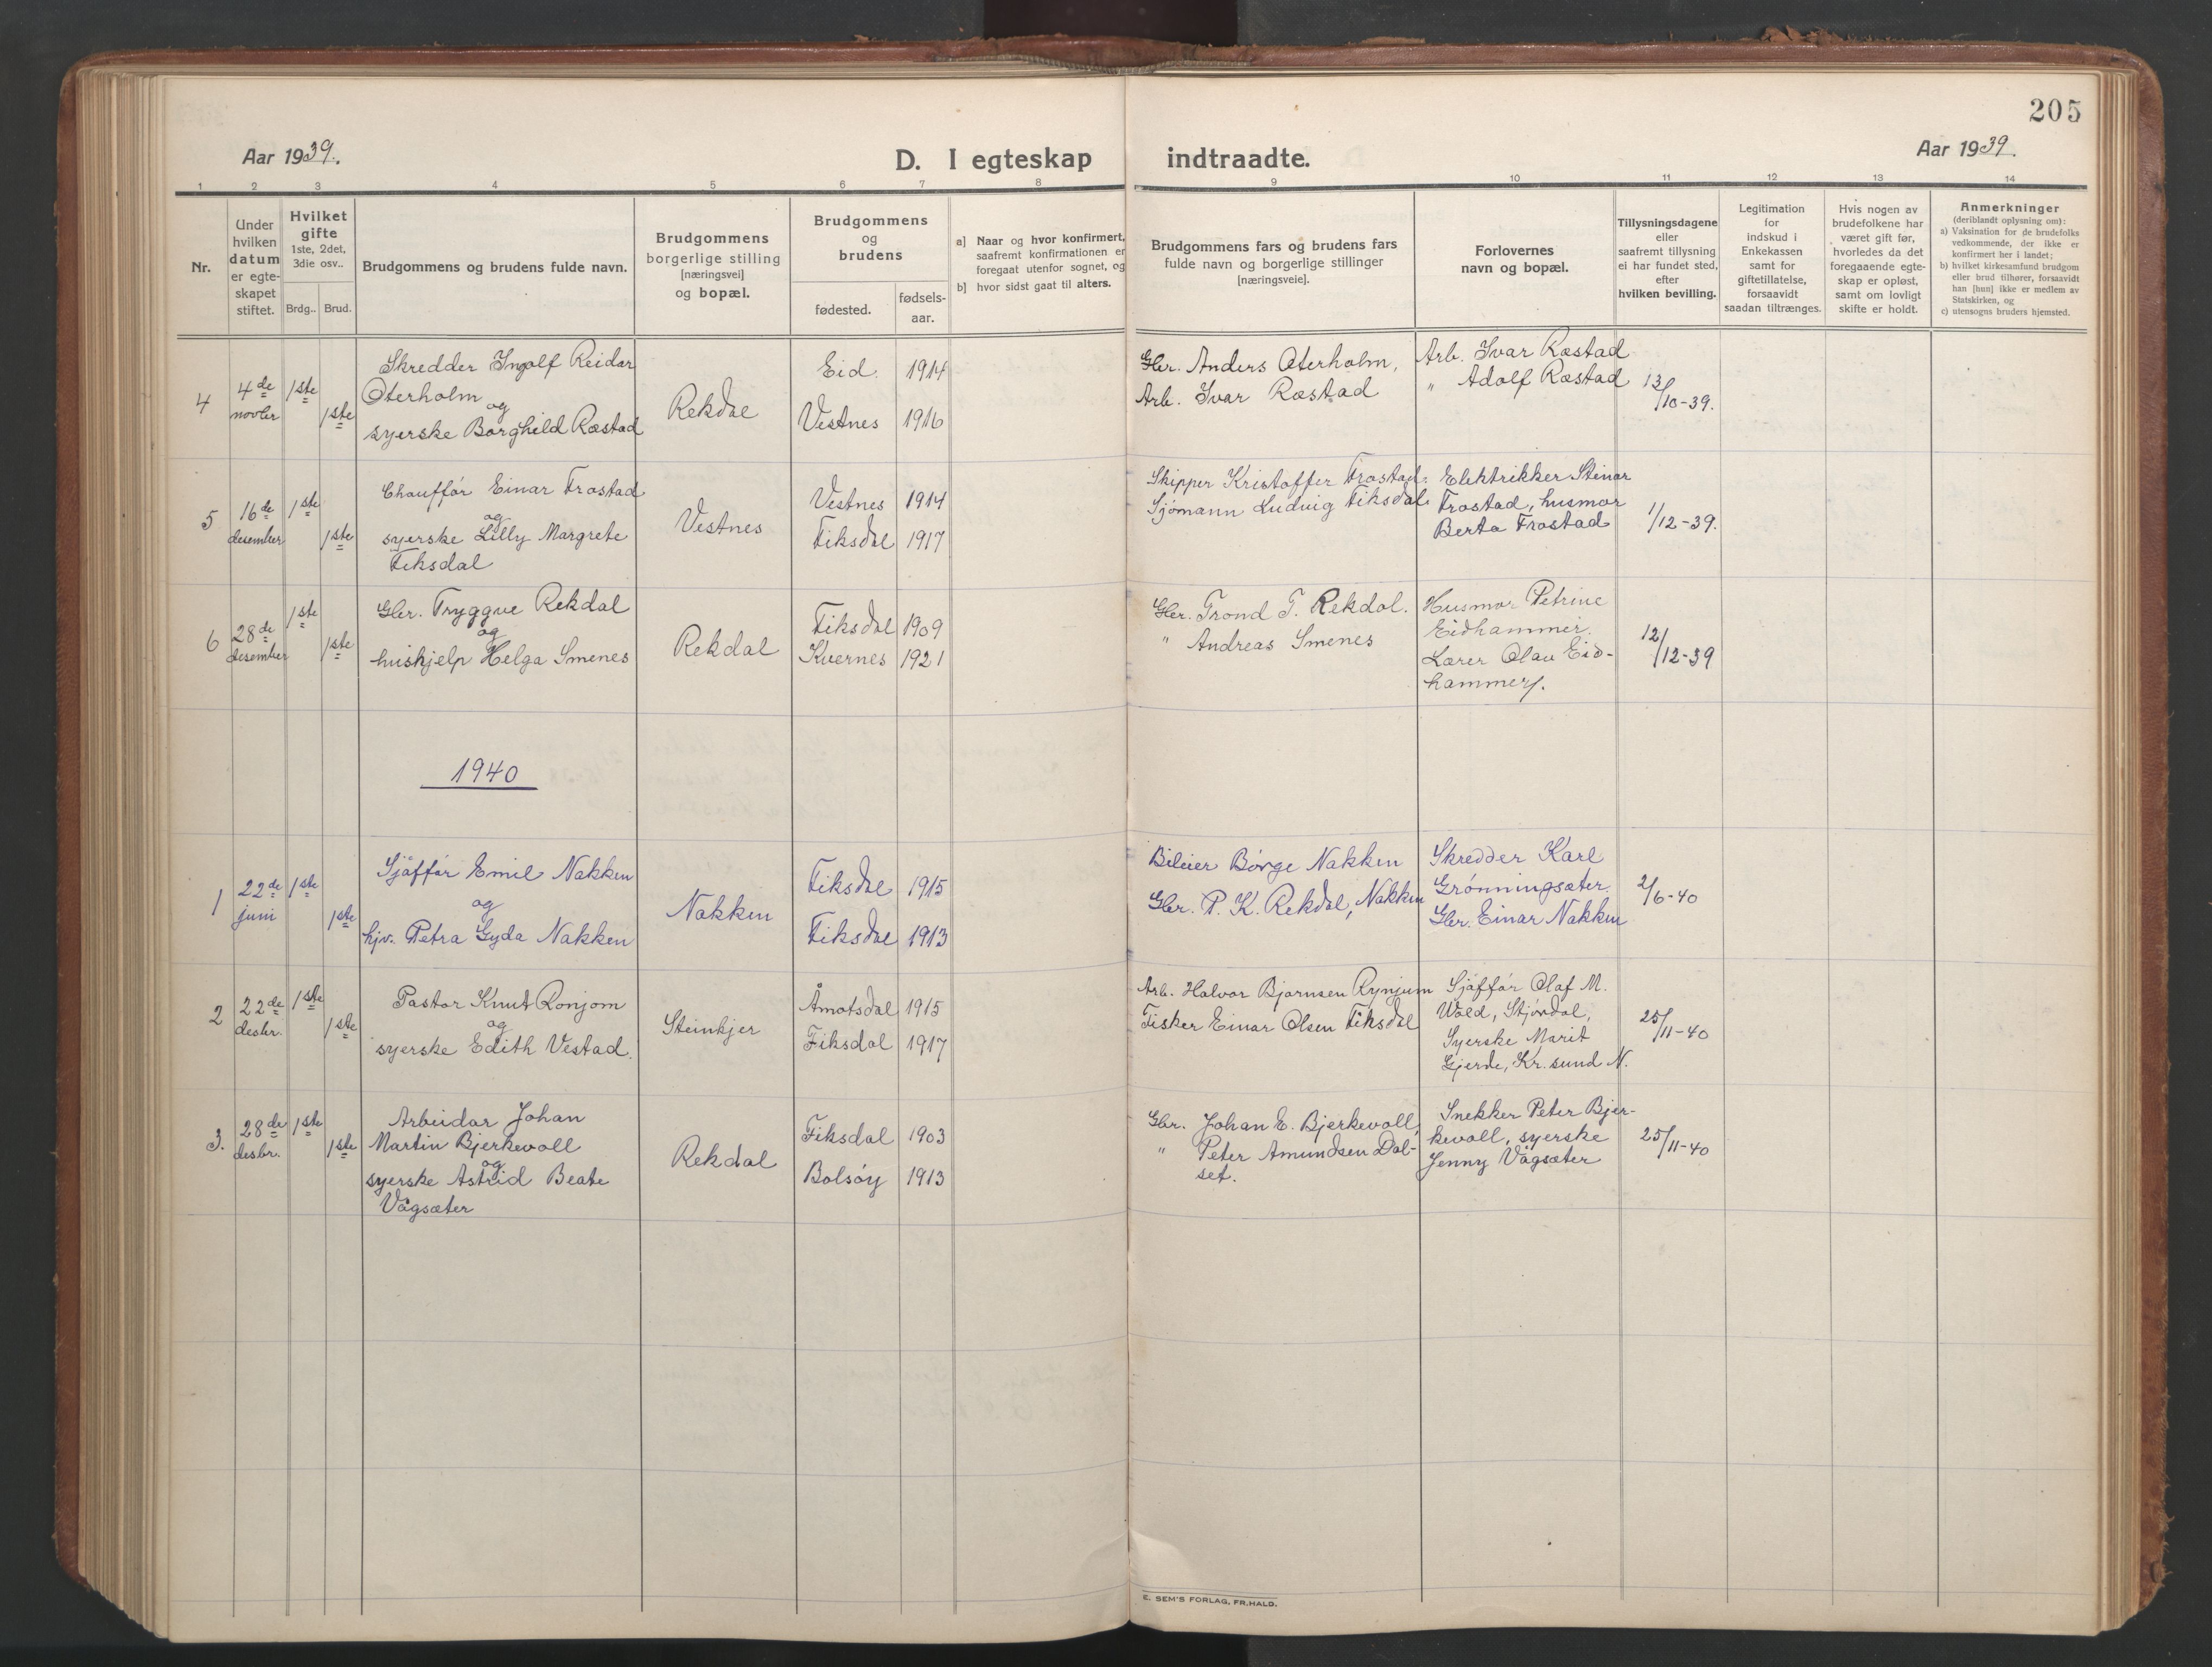 205
Aar 1939.
D. I egteskap indtraadte.
Aar 1939.
1 2 3 4 5 6 7 8 9 10 11 12 13 14
Nr.
Under
hvilken
datum
er egte-
skapet
stiftet.
Hvilket
gifte
1ste, 2det,
3die osv..
Brdg..
Brud.
Brudgommens og brudens fulde navn.
Brudgommens
borgerlige stilling
[næringsvei]
og bopæl.
Brudgommens
og
brudens
fødested.
fødsels-
aar.
a] Naar og hvor konfirmert,
saafremt konfirmationen er
foregaat utenfor sognet, og
b] hvor sidst gaat til alters.
Brudgommens fars og brudens fars
fulde navn og borgerlige stillinger
[næringsveie].
Forlovernes
navn og bopæl.
Tillysningsdagene
eller
saafremt tillysning
ei har fundet sted,
efter
hvilken bevilling.
Legitimation
for
indskud i
Enkekassen
samt for
giftetillatelse,
forsaavidt
saadan tiltrænges.
Hvis nogen av
brudefolkene har
været gift før,
hvorledes da det
foregaaende egte-
skap er opløst,
samt om lovligt
skifte er holdt.
Anmerkninger
(deriblandt oplysning om):
a) Vaksination for de brudefolks
vedkommende, der ikke er
konfirmert her i landet;
b) hvilket kirkesamfund brudgom
eller brud tilhører, forsaavidt
han [hun] ikke er medlem av
Statskirken, og
c) utensogns bruders hjemsted.
4
4de
novbr
1ste
1ste
Skredder Ingolf Reidar
Oterholm
og
syerske Borghild Ræstad
Rekdal
Eid. 1914
Vestnes 1916
Gbr. Anders Oterholm,
Arb. Ivar Ræstad
Arb. Ivar Ræstad
" Adolf Ræstad
13/10-39.
5
16de
desember
1ste
1ste
Chauffør Einar Frostad
og
syerske Lilly Margrete
Fiksdal
Vestnes
Vestnes 1914
Fiksdal 1917
Skipper Kristoffer Frostad.
Sjømann Ludvig Fiksdal.
Elektrikker Steinar
Frostad, husmor
Berta Frostad
1/12-39.
6
28de
desember
1ste
1ste
Gbr. Tryggve Rekdal
og
hushjelp Helga Smenes
Rekdal
Fiksdal 1909
Kvernes 1921
Gbr. Trond T. Rekdal.
" Andreas Smenes
Husmor Petrine
Eidhammer.
Lærer Olav Eid-
hammer.
12/12-39
1940
1
22de
juni
1ste
1ste
Sjåffør Emil Nakken
og
hjv. Petra Gyda Nakken
Nakken
Fiksdal 1915
Fiksdal 1913
Bileier Børge Nakken
Gbr. P. K. Rekdal, Nakken
Skredder Karl
Grønningsæter.
Gbr. Einar Nakken
2/6-40
2
22de
desbr.
1ste
1ste
Pastor Knut Ronjom
og
syerske Edith Vestad.
Steinkjer
Åmotsdal 1915
Fiksdal 1917
Arb. Halvor Bjørnsen Rynjum
Fisker Einar Olsen Fiksdal
Sjåffør Olaf M.
Wold, Stjørdal,
Syerske Marit
Gjerde, Kr. sund N.
25/11-40
3.
28de
desbr.
1ste
1ste
Arbeidar Johan
Martin Bjerkevoll
og
syerske Astrid Beate
Vågsæter
Rekdal
Fiksdal 1903
Bolsøy 1913
Gbr. Johan E. Bjerkevoll,
" Peter Amundsen Dal-
set.
Snekker Peter Bjer-
kevoll, syerske
Jenny Vågsæter
25/11-40
E. SEM'S FORLAG, FR.HALD.